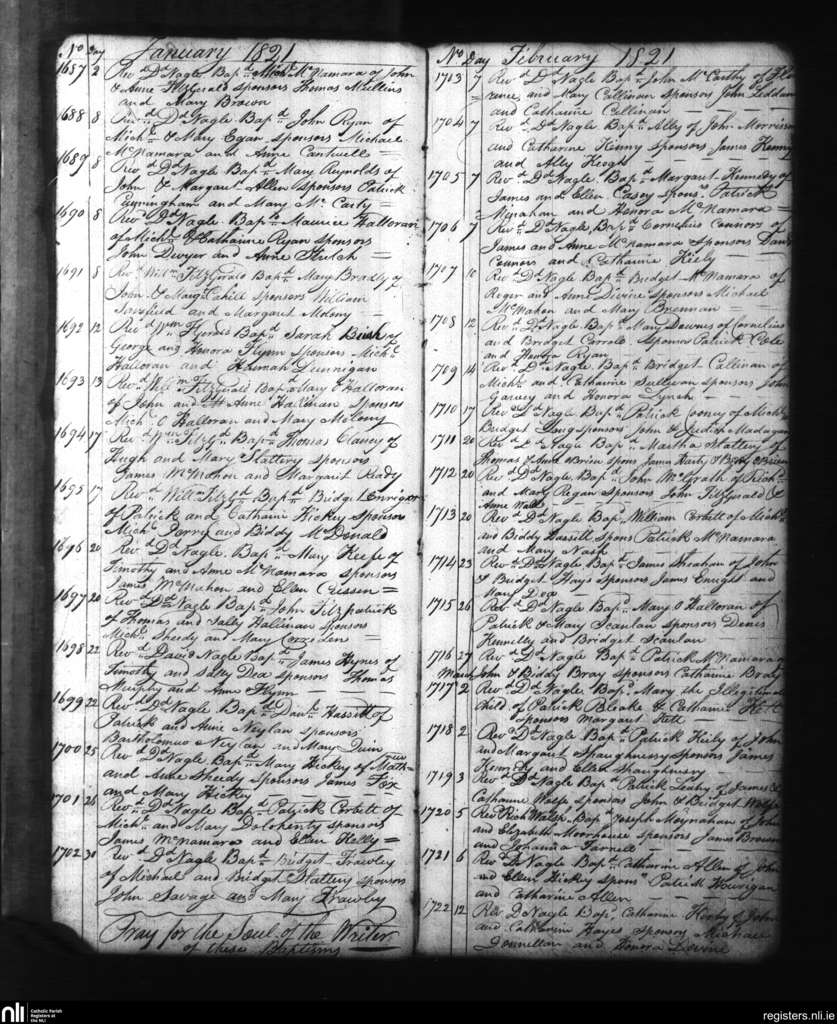 No Day January 1821
1687 2 Revd Dd Nagle Bapd Michl McNamara of John
& Anne Fitzgerald sponsors Thomas Mullins
and Mary Brown
1688 8 Revd Dd Nagle Bapd John Ryan of
Michl & Mary Egan sponsors Michael
McNamara and Anne Cantwell =
1689 8 Revd Dd Nagle Bapd Mary Reynolds of
John & Margaret Allen sponsors Patrick
Cuningham and Mary McCarty =
1690 8 Revd Dd Nagle Bapd Maurice Halloran
of Michl & Catharine Ryan sponsors
John Dwyer and Anne
1691 8 Revd Willm Fitzgerald Bapd Mary Bradly of
John & Margt Cahill sponsors William
and Margaret Molony
1692 12 Revd Wm Bapd Sarah Bush of
George and Honora Flynn sponsors Michl
Halloran and Hannah Dunnigan
1693 13 Revd Wm Fitzgerald Bapd Mary O Halloran
of John and Anne Hallinan sponsors
Michl O Halloran and Mary Molony
1694 17 Revd Wm Bapd Thomas Clancy of
Hugh and Mary Slattery sponsors
James McMahon and Margaret Ready
1695 17 Revd Will Bapd Bridget Enright
of Patrick and Catharine Hickey sponsors
Michl Garry and Biddy McDonald
1696 20 Revd Dd Nagle Bapd Mary Keefe of
Timothy and Anne McNamara sponsors
James McMahon and Ellen
1697 20 Revd Dd Nagle Bapd John Fitzpatrick
of Thomas and Sally Hallinan sponsors
Michl Sheedy and Mary
1698 22 Revd David Nagle Bapd James Hynes of
Timothy and Sally Dea sponsors Thomas
Murphy and Anne Flynn
1699 22 Revd Dd Nagle Bapd Danl Hassett of
Patrick and Anne Neylan sponsors
Bartholomew Neylan and Mary Quin
1700 25 Revd Dd Nagle Bapd Mary Hickey of Mathew
and Anne Sheedy sponsors James Fox
and Mary Hickey
1701 26 Revd Dd Nagle Bapd Patrick Corbett of
Michl and Mary Dologhenty sponsors
James McNamara and Ellen Kelly =
1702 30 Revd Dd Nagle Bapd Bridget Frawley
of Michael and Bridget Slattery sponsors
John Savage and Mary Frawley
Pray for the Soul of the Writer
of these Baptisms
No Day February 1821
1703 7 Revd Dd Nagle Bapd John McCarthy of Flo
rence and Mary Cullinan sponsors John Leddan
and Catharine Cullinan
1704 7 Revd Dd Nagle Bapd Ally of John Morrison
and Catharine Kenny sponsors James Kenny
and Ally Keogh
1705 7 Revd Dd Nagle Bapd Margaret Kennedy of
James and Ellen Casey Sponrs Patrick
Minahan and Honora McNamara =
1706 7 Revd Dd Nagle Bapd Cornelius Connors of
James and Anne McNamara sponsors
Connors and Catharine Kiely
1707 10 Revd Dd Nagle Bapd Bridget McNamara of
Roger and Anne Divine sponsors Michael
McMahon and Mary Brennan
1708 12 Revd Dd Nagle Bapd Mary Downes of Cornelius
and Bridget Corroll sponsors Patrick Cole
and Honora Ryan
1709 14 Revd Dd Nagle Bapd Bridget Callinan of
Michl and Catharine Sullivan sponsors John
Garvey and Honora Lynch
1710 17 Revd Dd Nagle Bapd Patrick of Michl
Bridget sponsors John & Judith Madagan
1711 20 Revd Dd Nagle Bapd Martha Slattery of
Thomas & Anne OBrien spons James Harty & Biddy OBrien
1712 20 Revd Dd Nagle Bapd John McGrath of Richd
and Mary Regan sponsors John Fitzgerald &
Anne Wall
1713 20 Revd Dd Nagle Bapd William Corbett of Michl
and Biddy Hassett spons Patrick McNamara
and Mary Nash
1714 23 Revd Dd Nagle Bapd James Sheahan of John
& Bridget Hays sponsors James Enright and
Mary Dea
1715 26 Revd Dd Nagle Bapd Mary O Halloran of
Patrick & Mary Scanlan sponsors Denis
Kennelly and Bridget Scanlan
1716 27 Revd Dd Nagle Bapd Patrick McNamara of
March John & Biddy Bray sponsors Catharine Brady
1717 2 Revd Dd Nagle Bapd Mary the Illegitimate
child of Patrick Bleake & Catharine Kett
sponsors Margaret Kett
1718 2 Revd Dd Nagle Bapd Patrick Heily of John
and Margaret Shaughnessy sponsors James
Kennedy and Ellen Shaughnessy
1719 3 Revd Dd Nagle Bapd Patrick Leahy of James &
Catharine Wolfe sponsors John & Bridget Wolfe
1720 5 Revd Richd Walsh Bapd Joseph Moynahan of John
and Elizabeth Moorhouse sponsors James Brown
and Johanna Farnell
1721 6 Revd Dd Nagle Bapd Catharine Allen of John
and Ellen Hickey sponsrs Patrick Hourigan
and Catharine Allen
1722 12 Revd D Nagle Bapd Catharine Kerby of John
and Catharine Hayes sponsors Michael
Donnellan and Honora Devine
nli Catholic Parish
Registers at
the NLI
registers.nli.ie